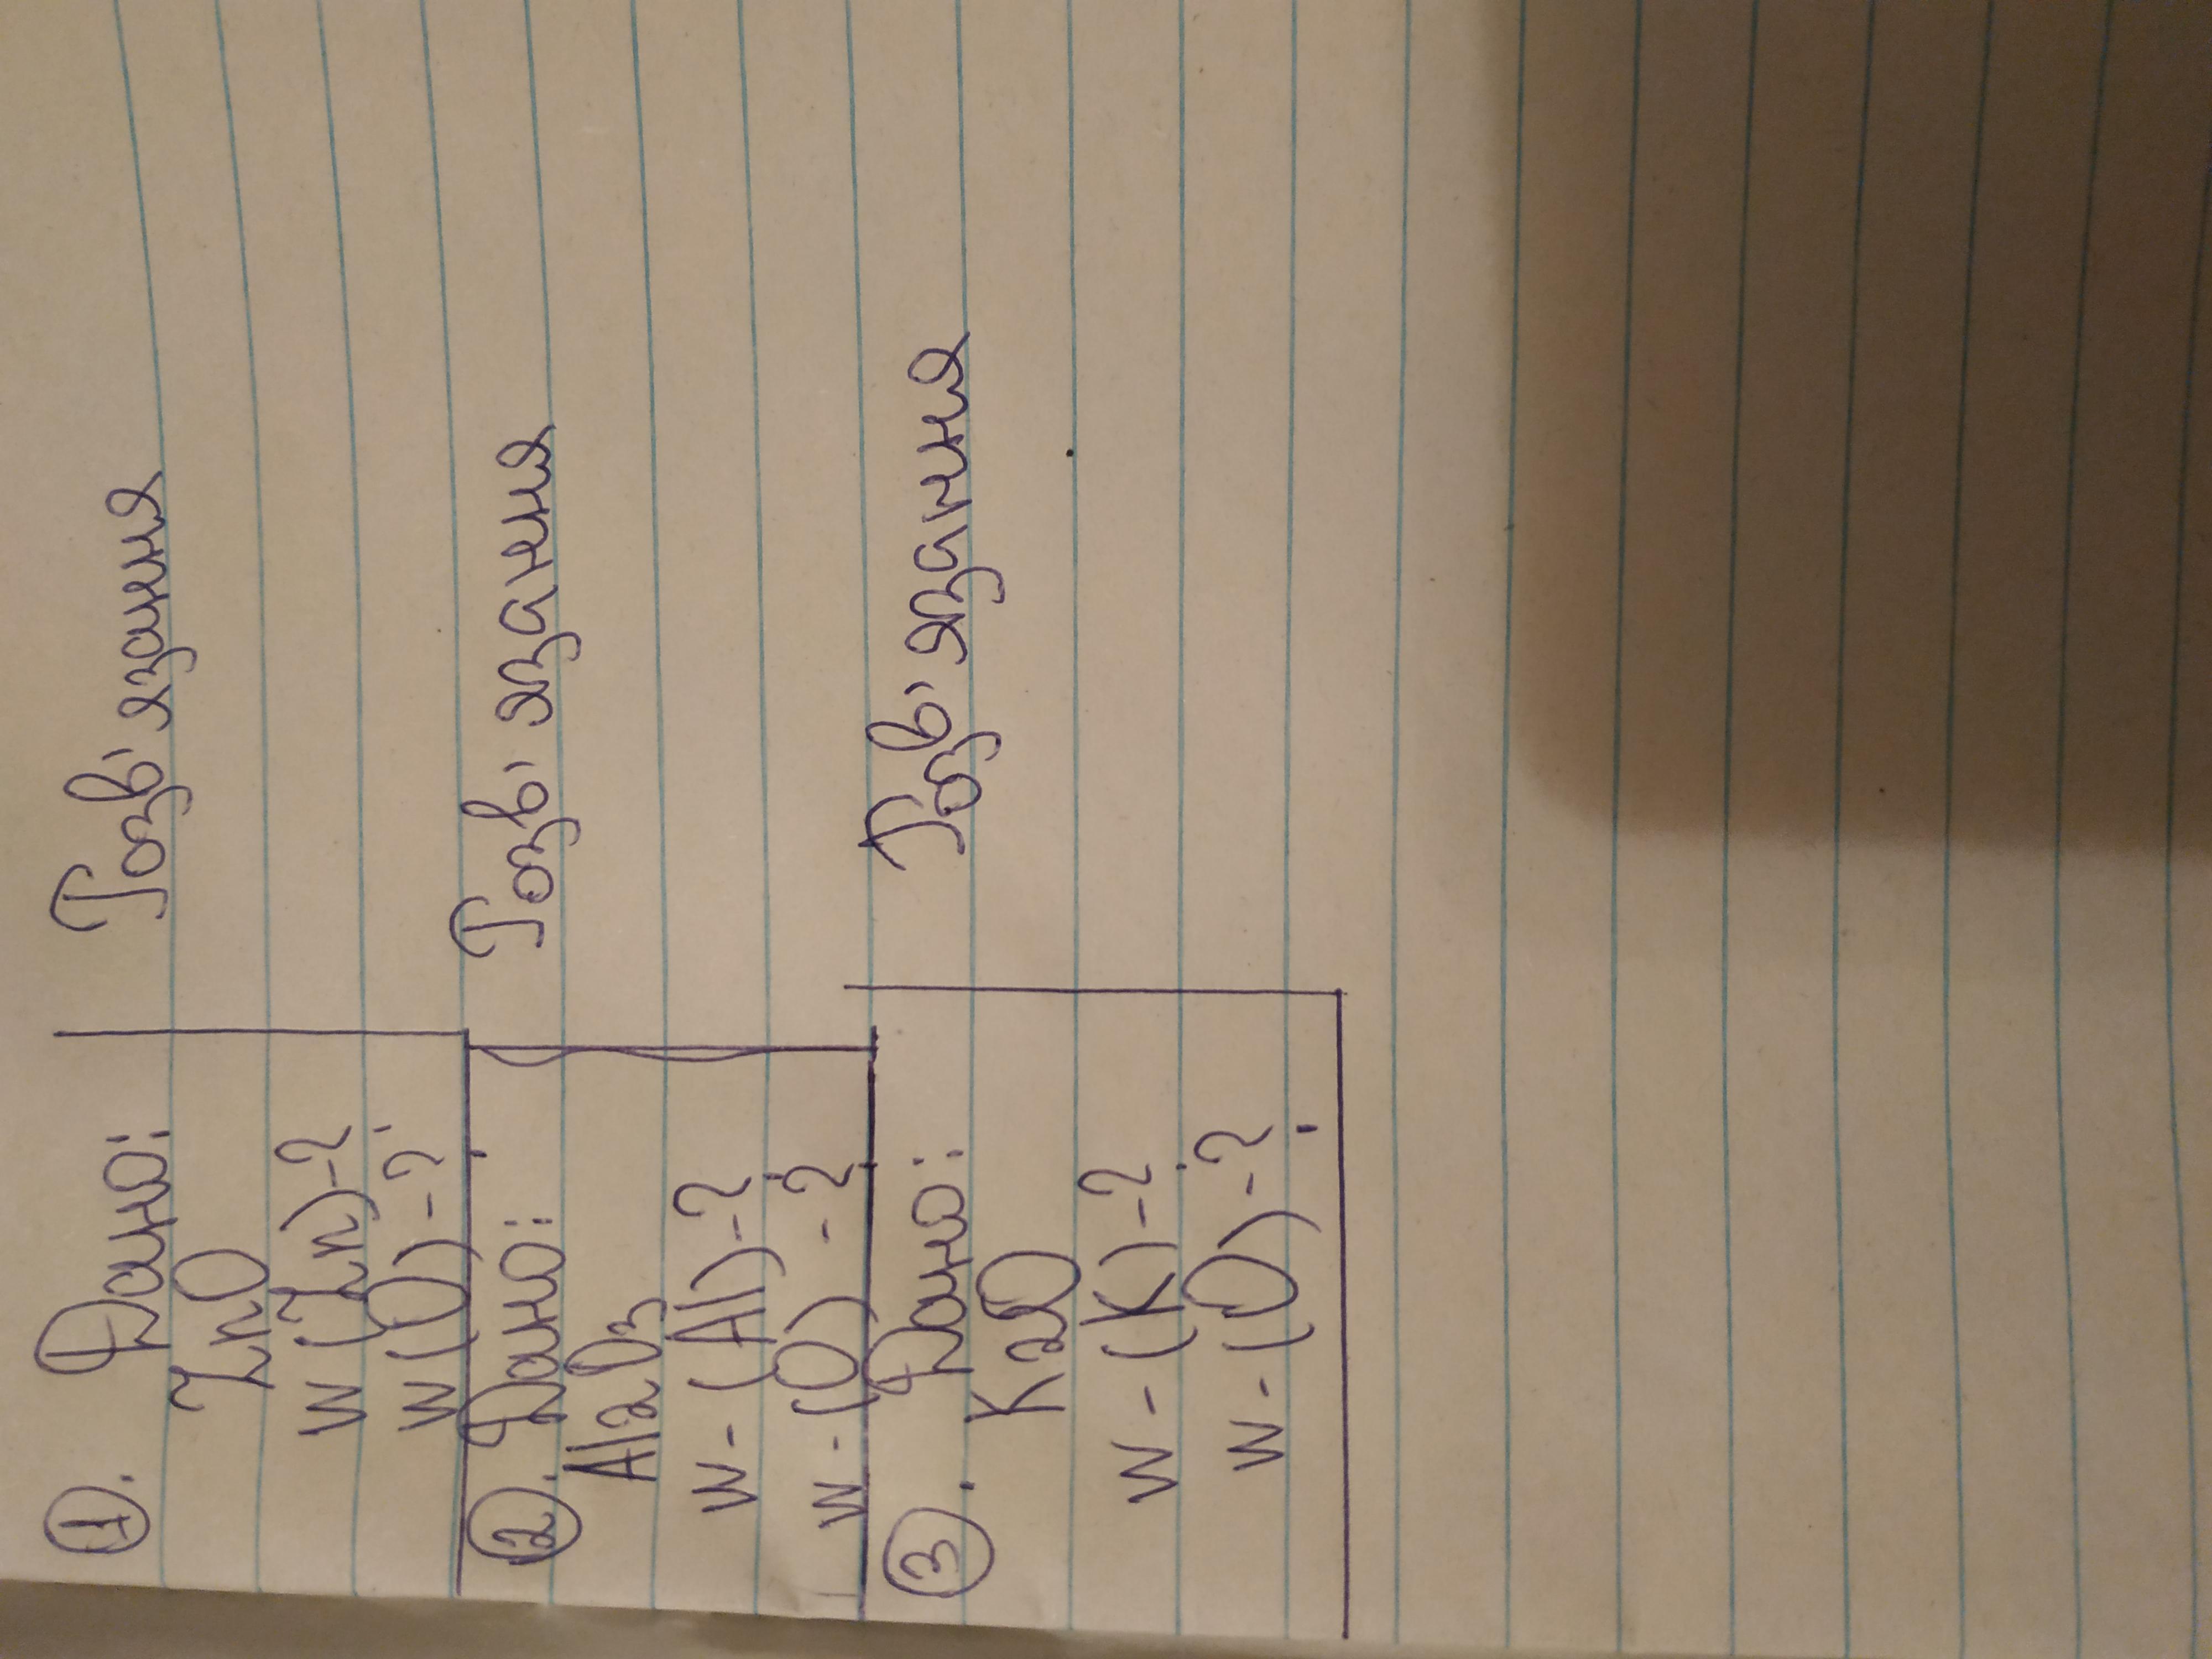 1. Дано: Розв'язання
ZnO
w (Zn)-?
w (O)-?
2. Дано: Розв'язання
Al2O3
w-(Al)-?
w-(O)-?
3. Дано: Розв'язання
K2O
w-(K)-?
w-(O)-?